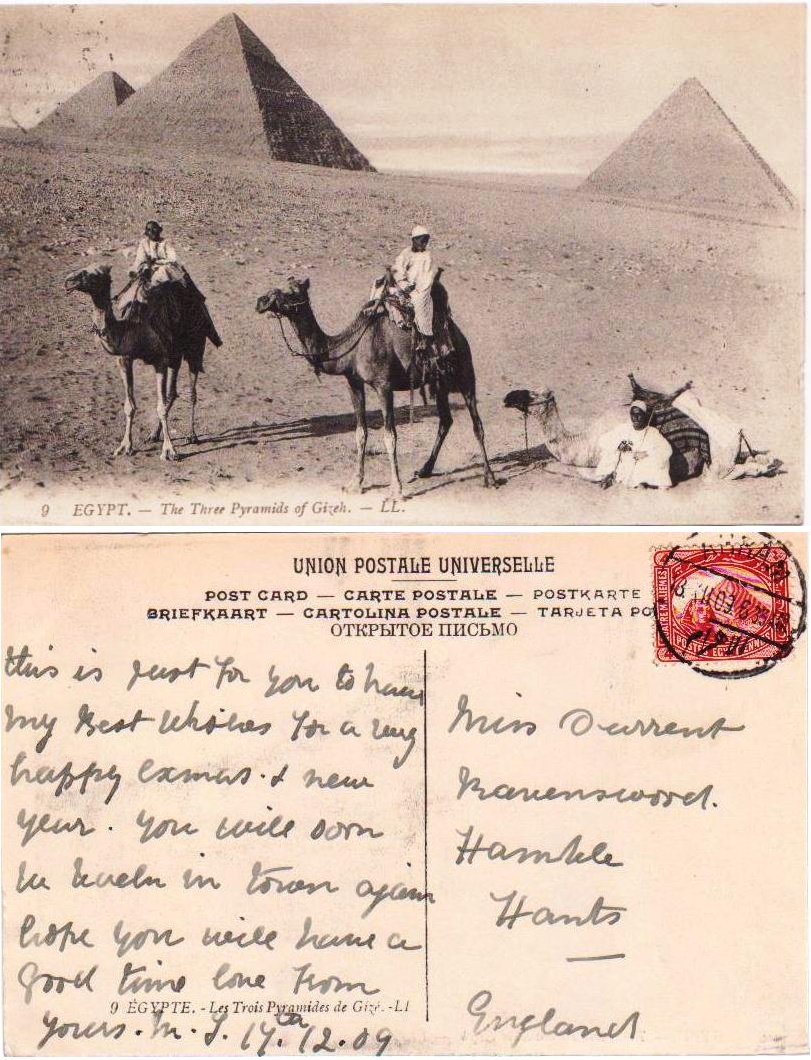 9 EGYPT. — The Three Pyramids of Gizeh. — LL.
UNION POSTALE UNIVERSELLE
POST CARD — CARTE POSTALE — POSTKARTE
BRIEFKAART — CARTOLINA POSTALE — TARJETA PO
ОТКРЫТОЕ ПИСЬМО
this is just for you to have
my Best Wishes for a very
happy Exmas. & new
year. you will soon
be in town again
hope you will have a
good time love from
9 ÉGYPTE. - Les Trois Pyramides de Gizé. - LL
yours. M. J. 17th. 12. 09
Miss Durrent
Ravenswood.
Hamble
Hants
England